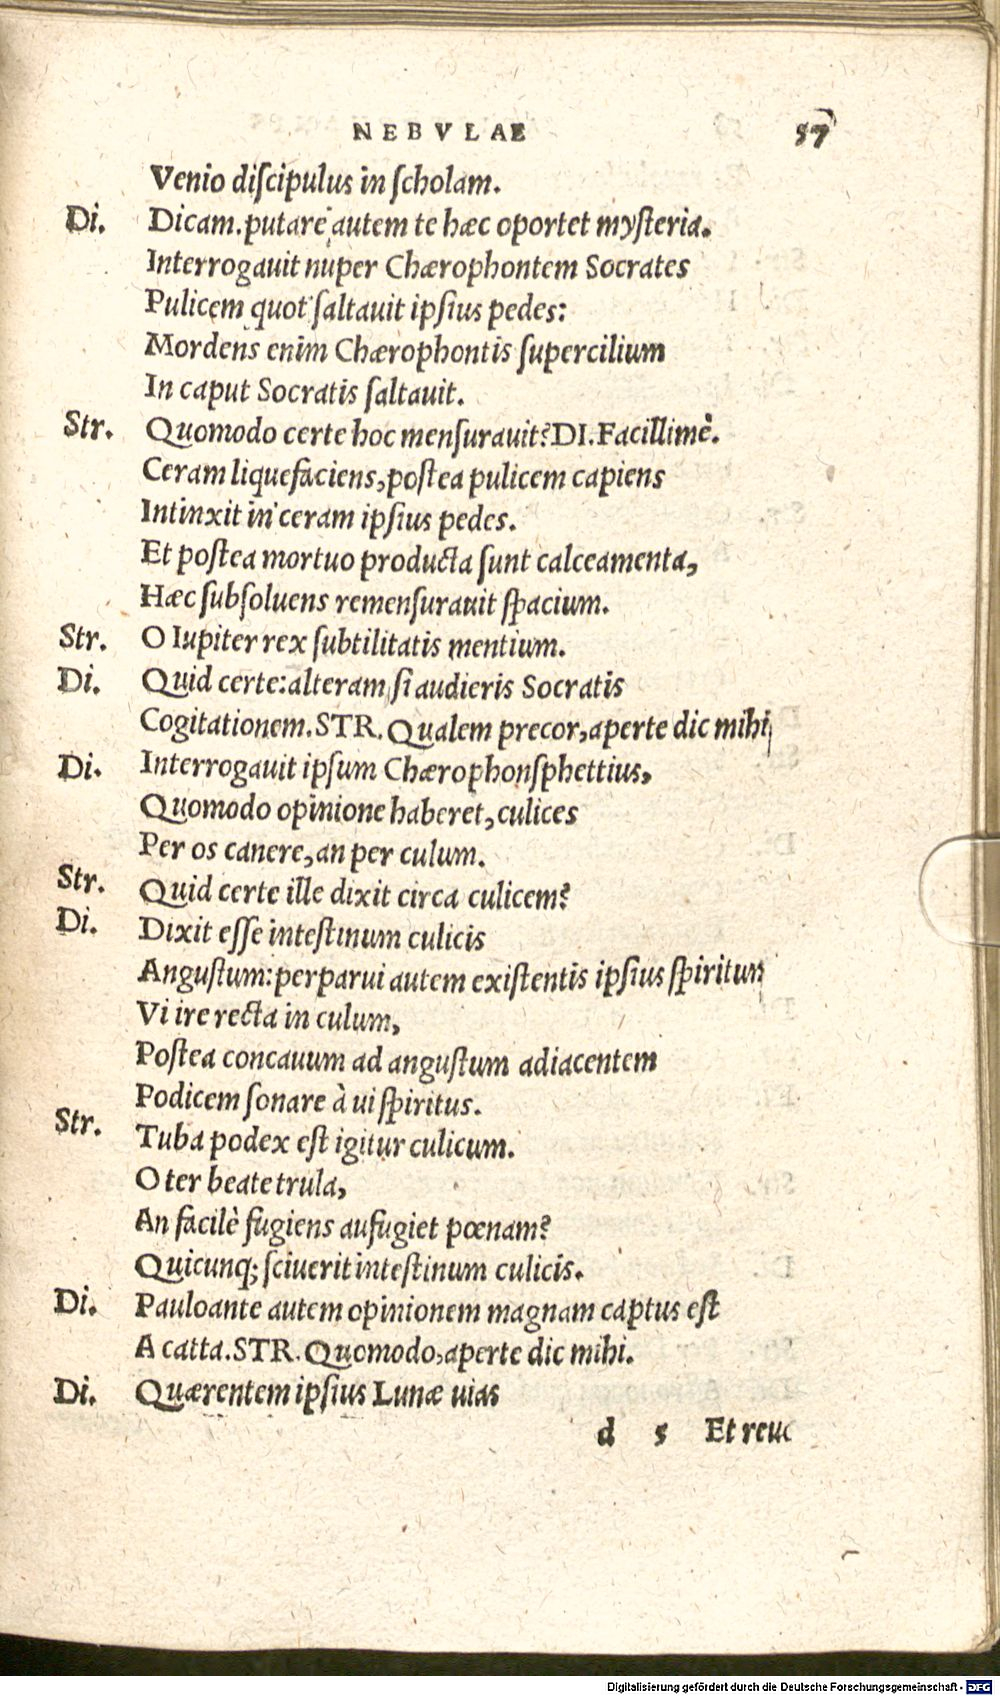 NEBVLAE 57
Venio diſcipulus in ſcholam.
Di. Dicam.putare autem te hæc oportet myſteria.
Interrogauit nuper Chærophontem Socrates
Pulicem quot ſaltauit ipſius pedes:
Mordens enim Chærophontis ſupercilium
In caput Socratis ſaltauit.
Str. Quomodo certe hoc menſurauit?DI.Facillimè.
Ceram liquefaciens,poſtea pulicem capiens
Intinxit in ceram ipſius pedes.
Et poſtea mortuo producta ſunt calceamenta,
Hæc ſubſoluens remenſurauit ſpacium.
Str. O Iupiter rex ſubtilitatis mentium.
Di. Quid certe:alteram ſi audieris Socratis
Cogitationem.STR.Qualem precor,aperte dic mihi
Di. Interrogauit ipſum Chærophonſphettius,
Quomodo opinione haberet,culices
Per os canere,an per culum.
Str. Quid certe ille dixit circa culicem?
Di. Dixit eſſe inteſtinum culicis
Anguſtum:perparui autem exiſtentis ipſius ſpiritum
Vi ire recta in culum,
Poſtea concauum ad anguſtum adiacentem
Podicem ſonare à ui ſpiritus.
Str. Tuba podex eſt igitur culicum.
O ter beate trula,
An facilè fugiens aufugiet pœnam?
Quicunq; ſciuerit inteſtinum culicis.
Di. Pauloante autem opinionem magnam captus eſt
A catta.STR.Quomodo,aperte dic mihi.
Di. Quærentem ipſius Lunæ uias
d 5 Et reuc
Digitalisierung gefördert durch die Deutsche Forschungsgemeinschaft - DFG